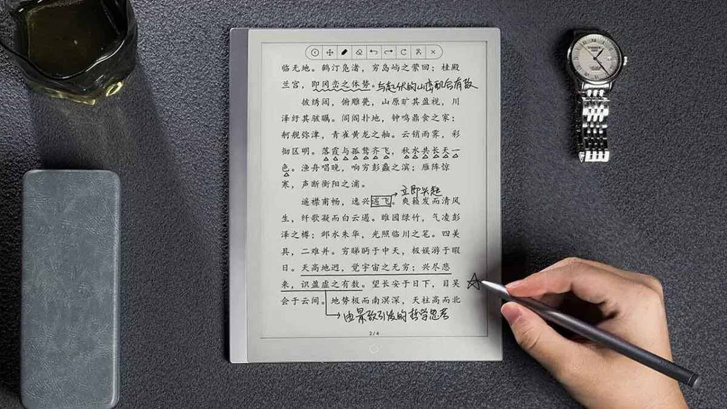 临无地。鹤汀凫渚，穷岛屿之萦回；桂殿
兰宫，即冈峦之体势。与起伏的山峦配合有致
披绣闼，俯雕甍，山原旷其盈视，川
泽纡其骇瞩。闾阎扑地，钟鸣鼎食之家；
舸舰弥津，青雀黄龙之舳。云销雨霁，彩
彻区明。落霞与孤鹜齐飞，秋水共长天一
色。渔舟唱晚，响穷彭蠡之滨；雁阵惊
寒，声断衡阳之浦。
立即兴起
遥襟甫畅，逸兴遄飞。爽籁发而清风
生，纤歌凝而白云遏。睢园绿竹，气凌彭
泽之樽；邺水朱华，光照临川之笔。四美
具，二难并。穷睇眄于中天，极娱游于暇
日。天高地迥，觉宇宙之无穷；兴尽悲
来，识盈虚之有数。望长安于日下，目吴
会于云间。地势极而南溟深，天柱高而北
由景致引发的哲学思考
3/4